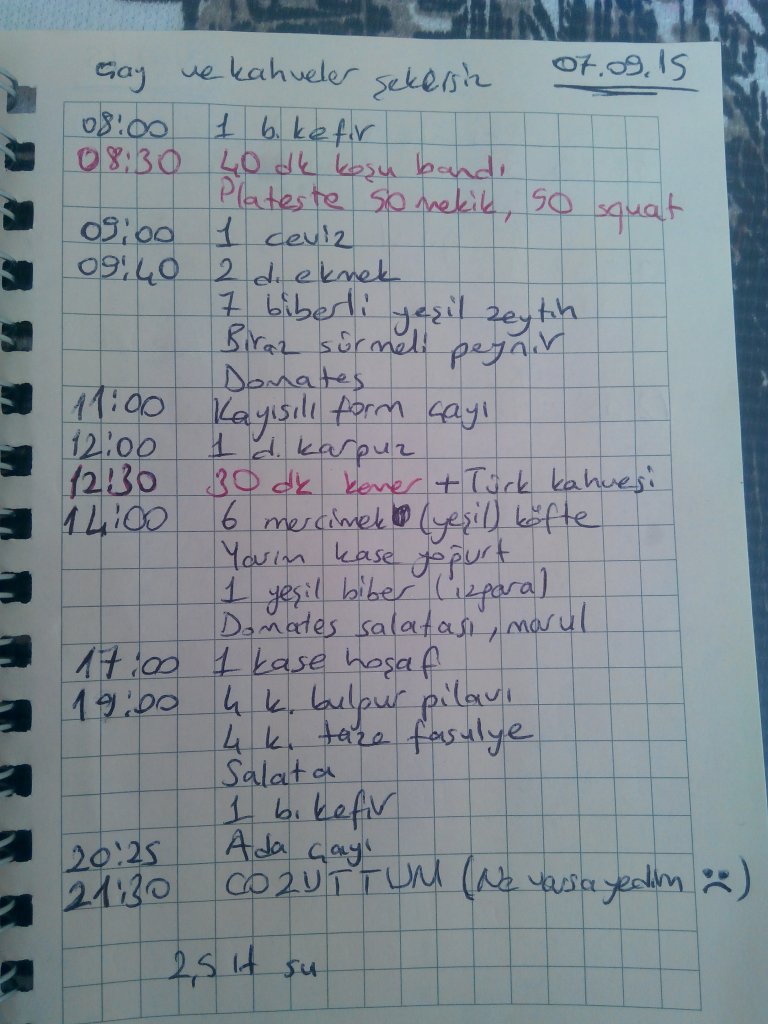 Çay ve kahveler şekersiz 07.09.15
08:00 1 b. kefir
08:30 40 dk koşu bandı
Plateste 50 mekik, 50 squat
09:00 1 ceviz
09:40 2 d. ekmek
7 biberli yeşil zeytin
Biraz sürmeli peynir
Domates
11:00 Kayısılı form çayı
12:00 1 d. karpuz
12:30 30 dk kemer + Türk kahvesi
14:00 6 mercimek (yeşil) köfte
Yarım kase yoğurt
1 yeşil biber (ızgara)
Domates salatası, marul
17:00 1 kase hoşaf
19:00 4 k. bulgur pilavı
4 k. taze fasulye
Salata
1 b. kefir
20:25 Ada çayı
21:30 COZUTTUM (Ne varsa yedim :()
2,5 lt su